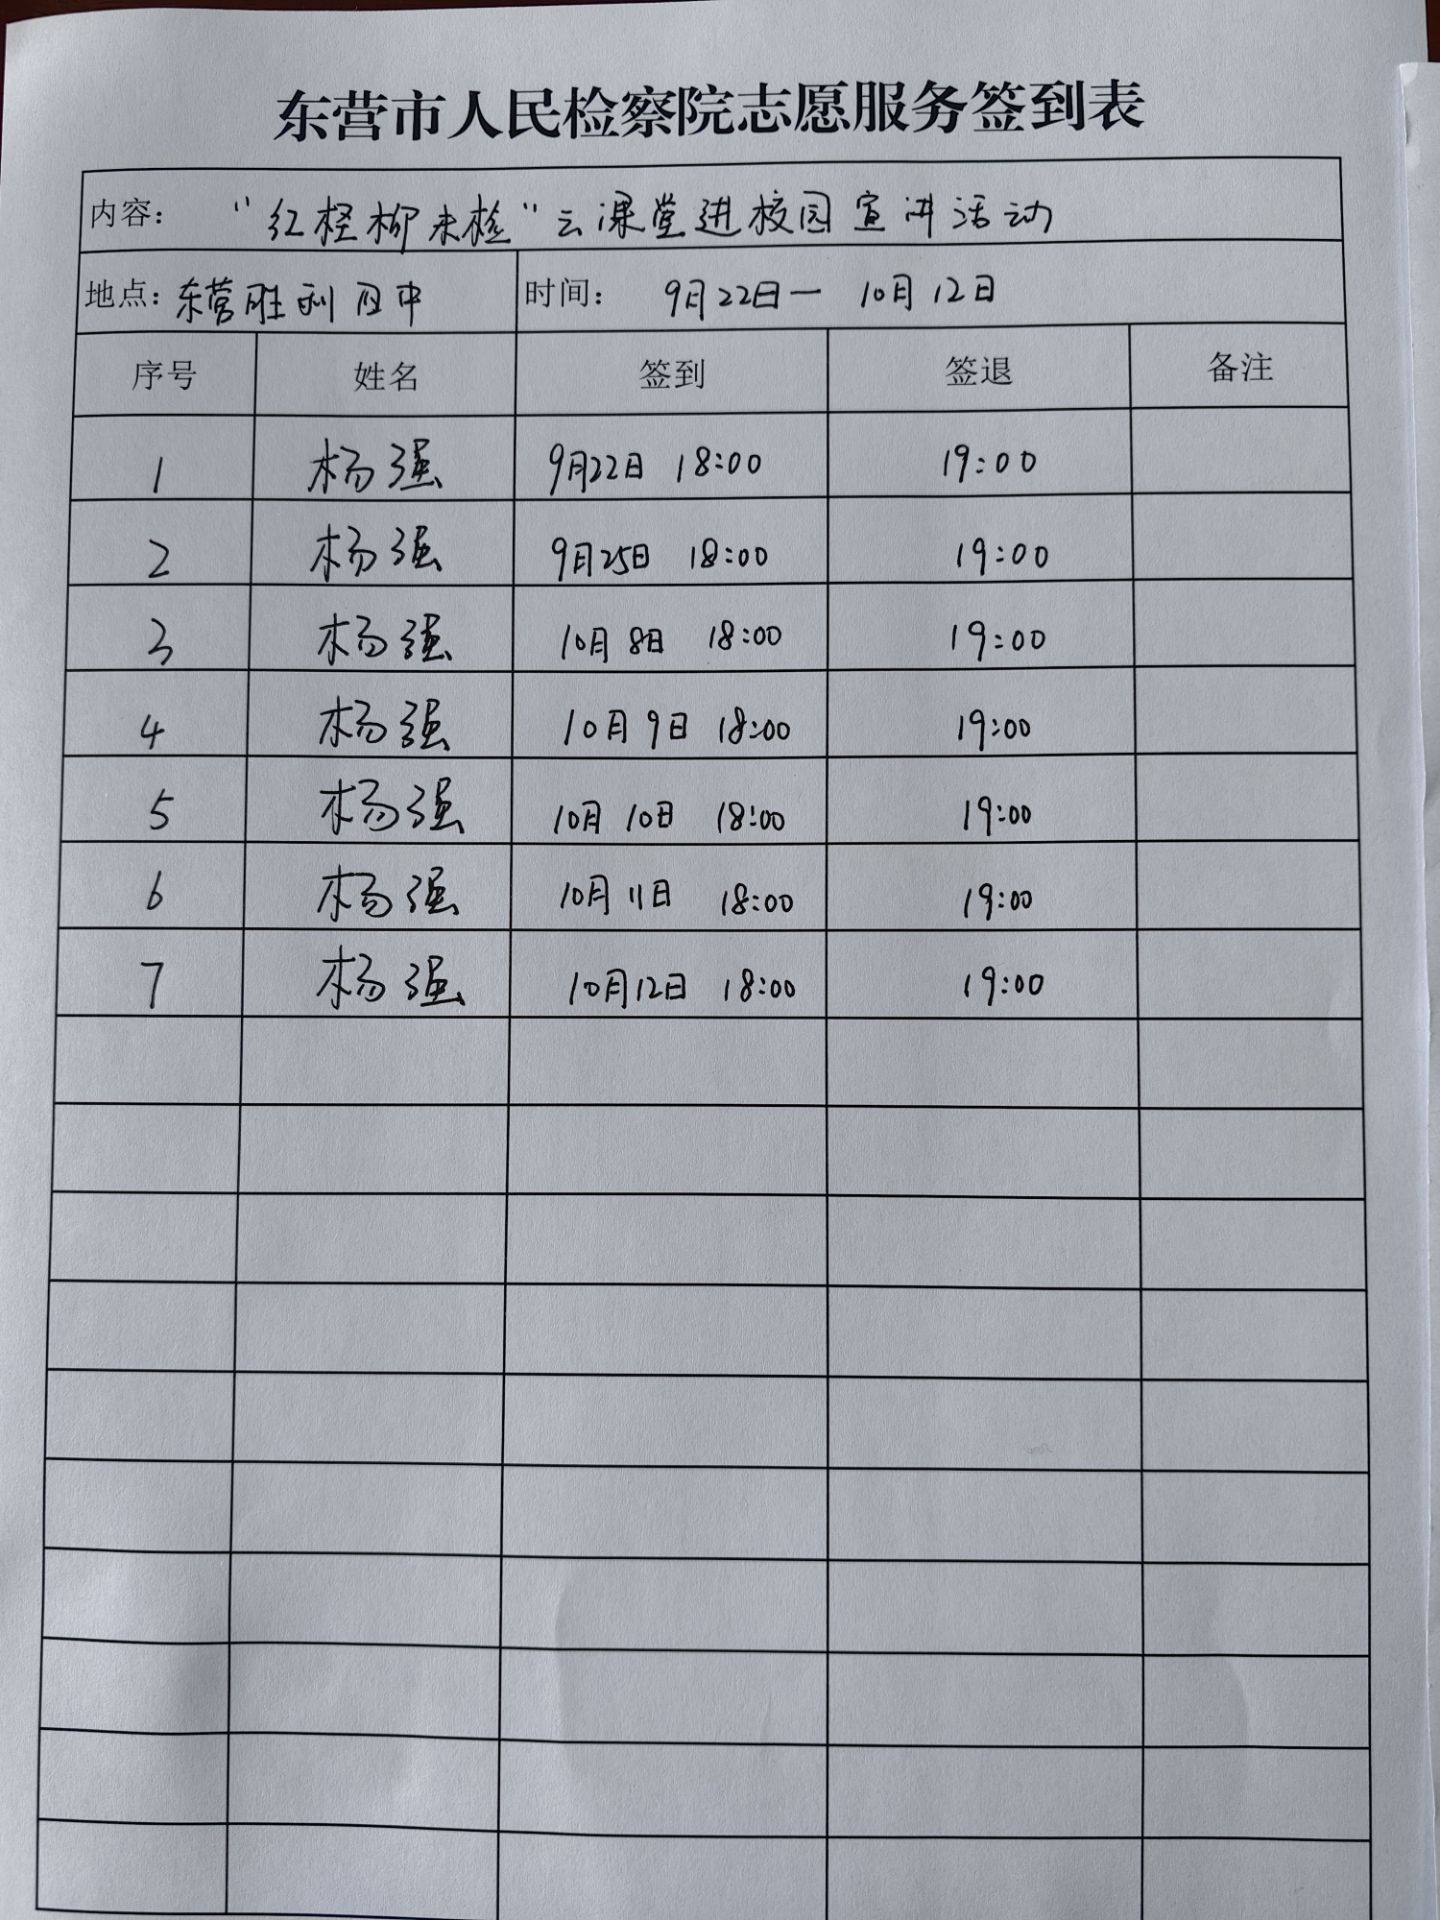 东营市人民检察院志愿服务签到表
内容： “红柽柳未检”云课堂进校园宣讲活动
地点：东营胜利 中 时间： 9月22日— 10月12日
序号 姓名 签到 签退 备注
1 杨强 9月22日 18:00 19:00
2 杨强 9月25日 18:00 19:00
3 杨强 10月8日 18:00 19:00
4 杨强 10月9日 18:00 19:00
5 杨强 10月10日 18:00 19:00
6 杨强 10月11日 18:00 19:00
7 杨强 10月12日 18:00 19:00